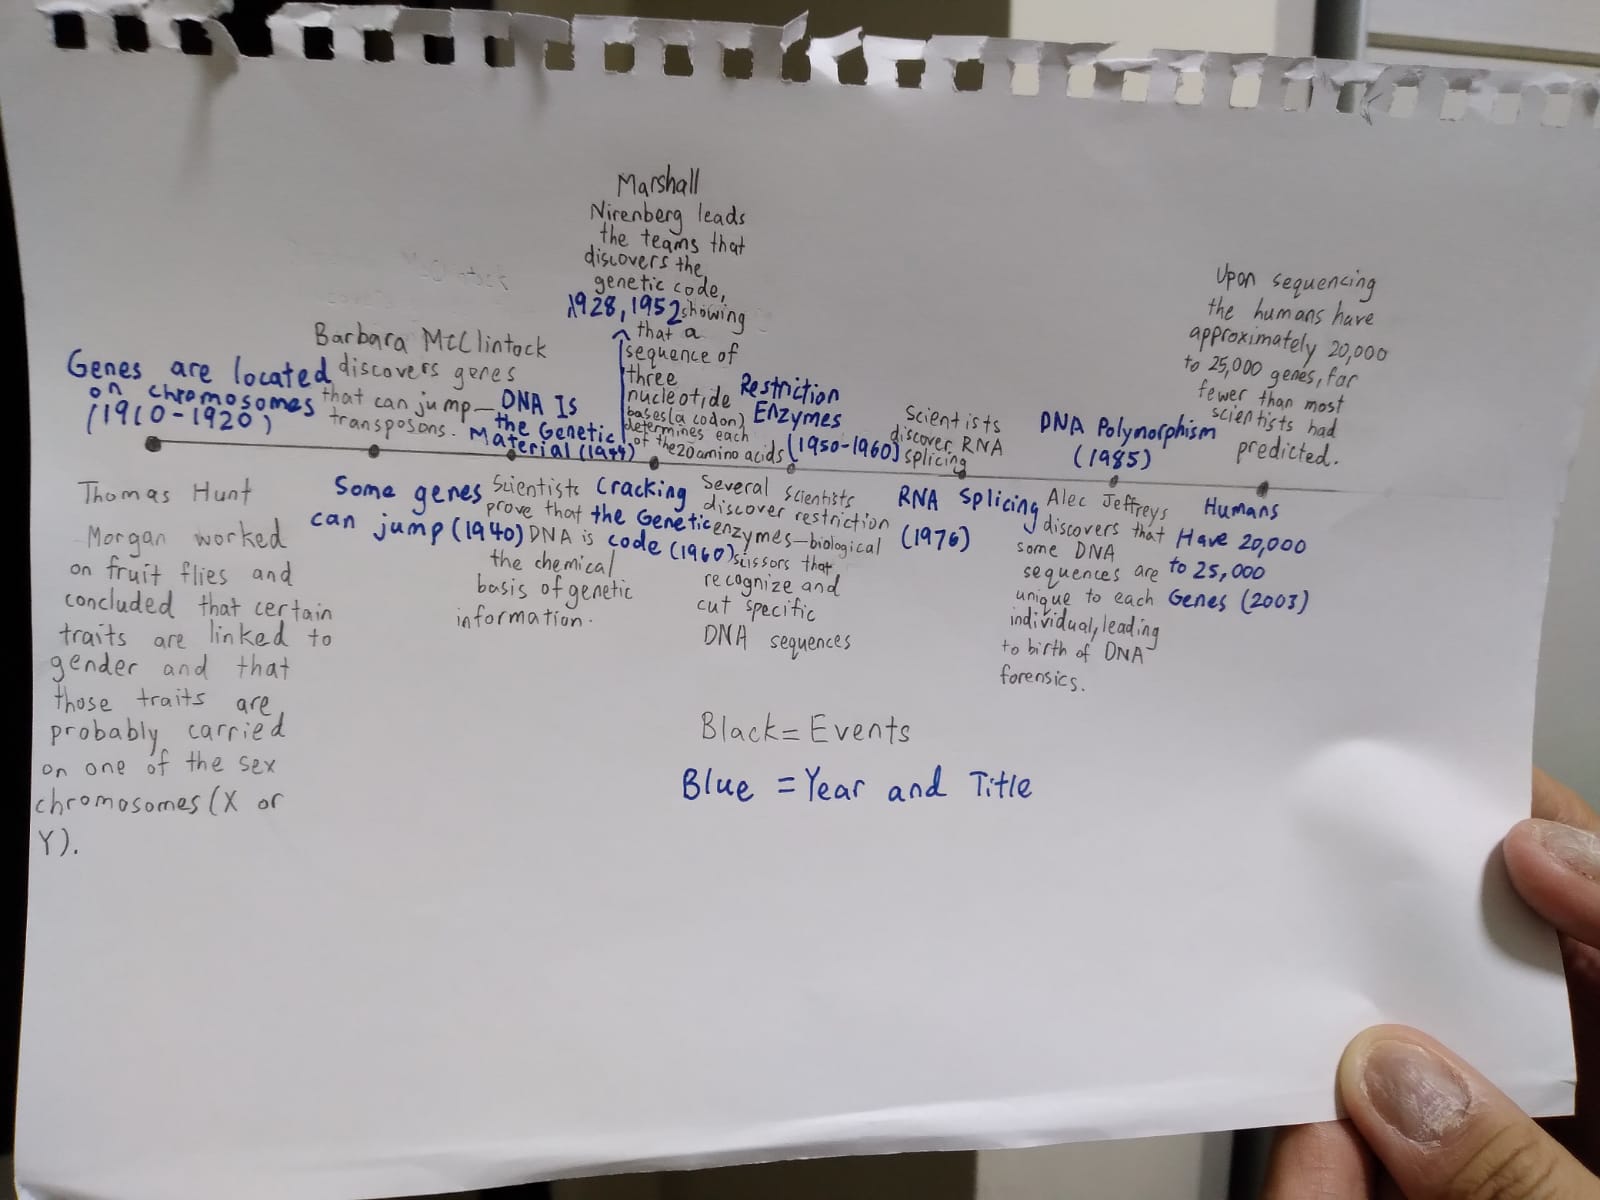 Genes are located
on chromosomes
(1910-1920)
Thomas Hunt
Morgan worked
on fruit flies and
concluded that certain
traits are linked to
gender and that
those traits are
probably carried
on one of the sex
chromosomes (X or
Y).
Barbara McClintock
discovers genes
that can jump—
transposons.
Some genes
can jump (1940)
DNA Is
the Genetic
Material (1944)
1928, 1952
Scientists
prove that
DNA is
the chemical
basis of genetic
information.
Marshall
Nirenberg leads
the teams that
discovers the
genetic code,
showing
that a
sequence of
three
nucleotide
bases (a codon)
determines each
of the 20 amino acids
Cracking
the Genetic
code (1960)
Restriction
Enzymes
(1950-1960)
Several scientists
discover restriction
enzymes—biological
scissors that
recognize and
cut specific
DNA sequences
Scientists
discover RNA
splicing
RNA Splicing
(1976)
DNA Polymorphism
(1985)
Alec Jeffreys
discovers that
some DNA
sequences are
unique to each
individual, leading
to birth of DNA
forensics.
Upon sequencing
the humans have
approximately 20,000
to 25,000 genes, far
fewer than most
scientists had
predicted.
Humans
Have 20,000
to 25,000
Genes (2003)
Black = Events
Blue = Year and Title